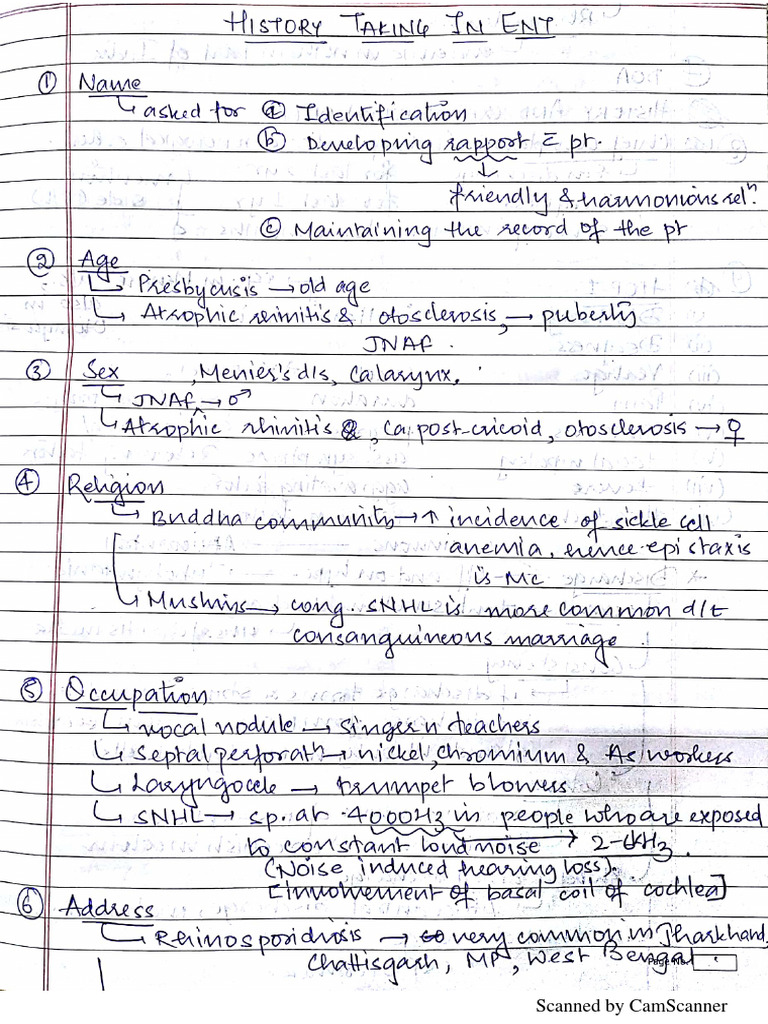 HISTORY TAKING IN ENT
① Name
↳ asked for ⓐ Identification
ⓑ Developing rapport c̄ pt.
↓
friendly & harmonious relⁿ.
ⓒ Maintaining the record of the pt
② Age
↳ Presbycusis → old age
↳ Atrophic rinitis & otosclerosis, → puberty
JNAF.
③ Sex , Menier's d/s, Ca larynx.
↳ JNAF → ♂
↳ Atrophic rhinitis &, Ca post-cricoid, otosclerosis → ♀
④ Religion
↳ Buddha community → ↑ incidence of sickle cell
anemia, hence epistaxis
is MC
↳ Muslims → cong. SNHL is more common d/t
consanguineous marriage.
⑤ Occupation
↳ vocal nodule → singer n teachers
↳ Septal perforatⁿ → nickel, chromium & As workers
↳ Laryngocele → trumpet blowers
↳ SNHL → sp. at 4000Hz in people who are exposed
to constant loud noise → 2-6kHz.
(Noise induced hearing loss).
[involvement of basal coil of cochlea]
⑥ Address
↳ Rhinosporidiosis → very common in Jharkhand,
Chattisgarh, MP, West Bengal
Page No.
Scanned by CamScanner